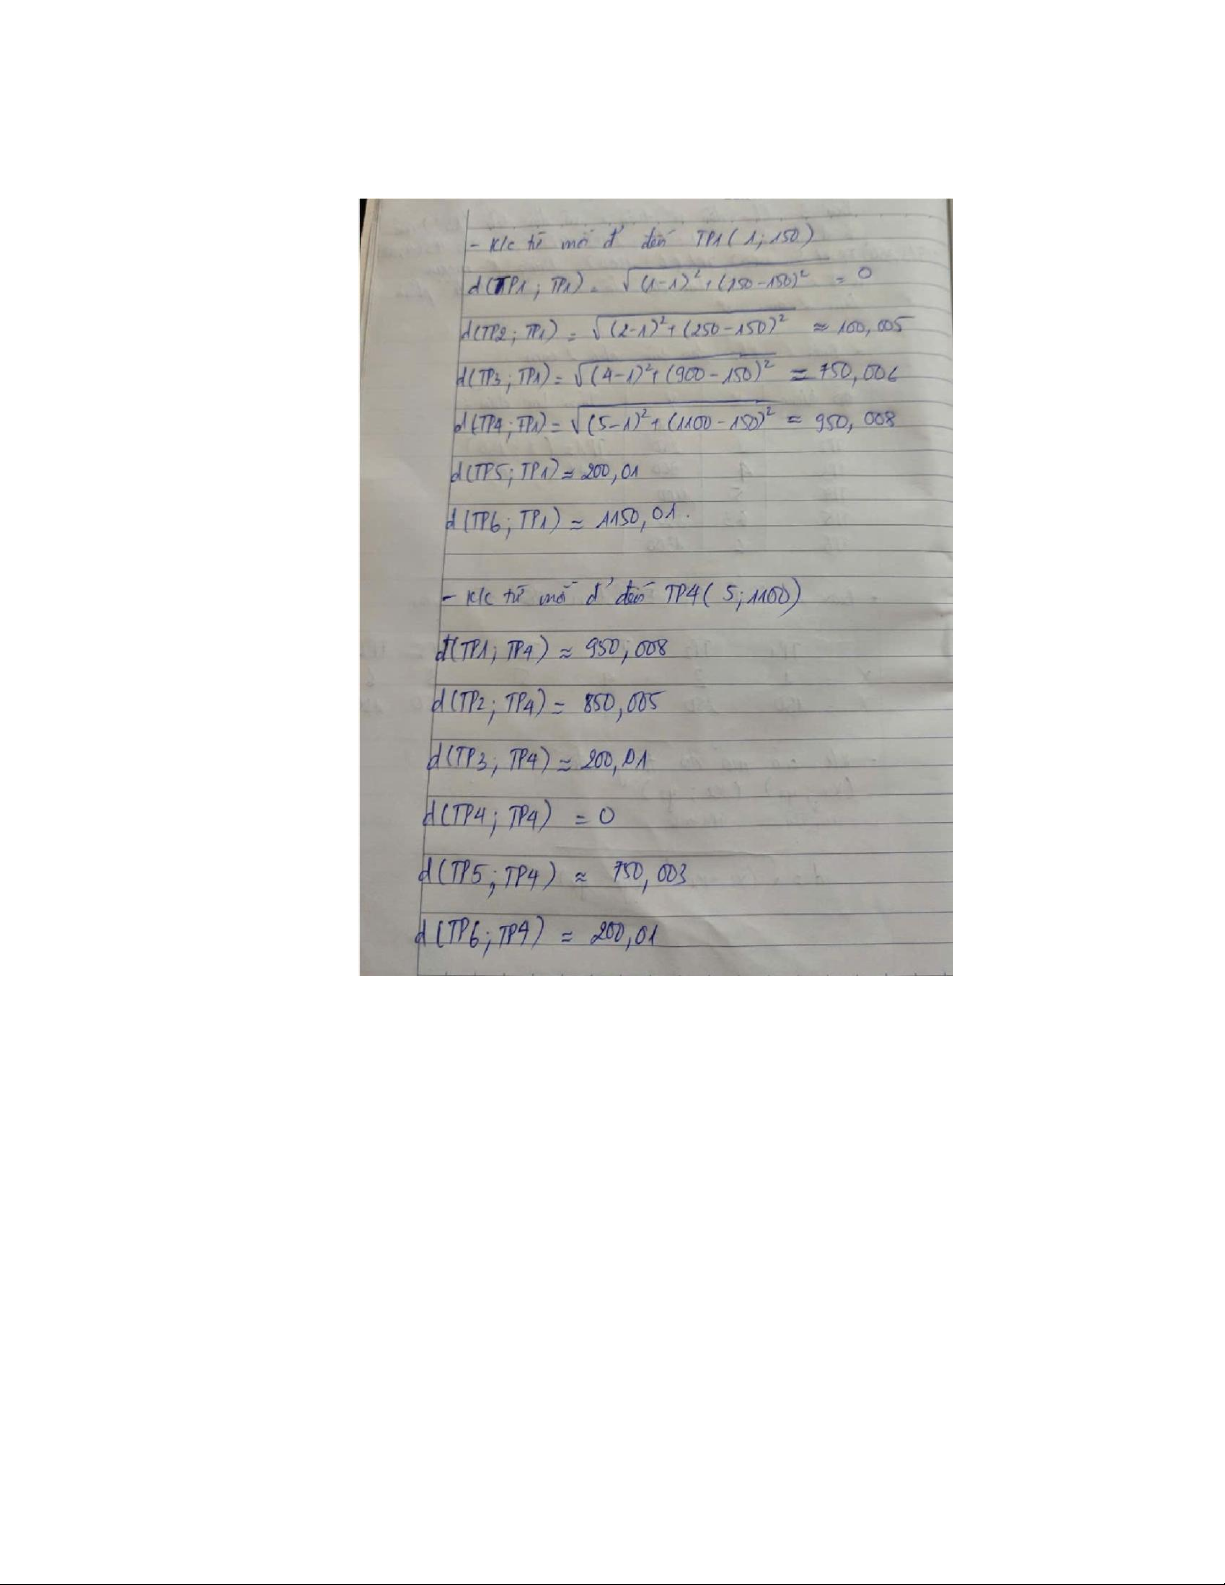 - K/c từ mỗi đ' đến TP1 (1; 150)
d(TP1; TP1) = √(1-1)² + (150-150)² = 0
d(TP2; TP1) = √(2-1)² + (250-150)² ≈ 100,005
d(TP3; TP1) = √(4-1)² + (900-150)² ≈ 750,006
d(TP4; TP1) = √(5-1)² + (1100-150)² ≈ 950,008
d(TP5; TP1) ≈ 200,01
d(TP6; TP1) ≈ 1150,01.
- K/c từ mỗi đ' đến TP4 (5; 1100)
d(TP1; TP4) ≈ 950,008
d(TP2; TP4) = 850,005
d(TP3; TP4) ≈ 200,01
d(TP4; TP4) = 0
d(TP5; TP4) ≈ 750,003
d(TP6; TP4) ≈ 200,01